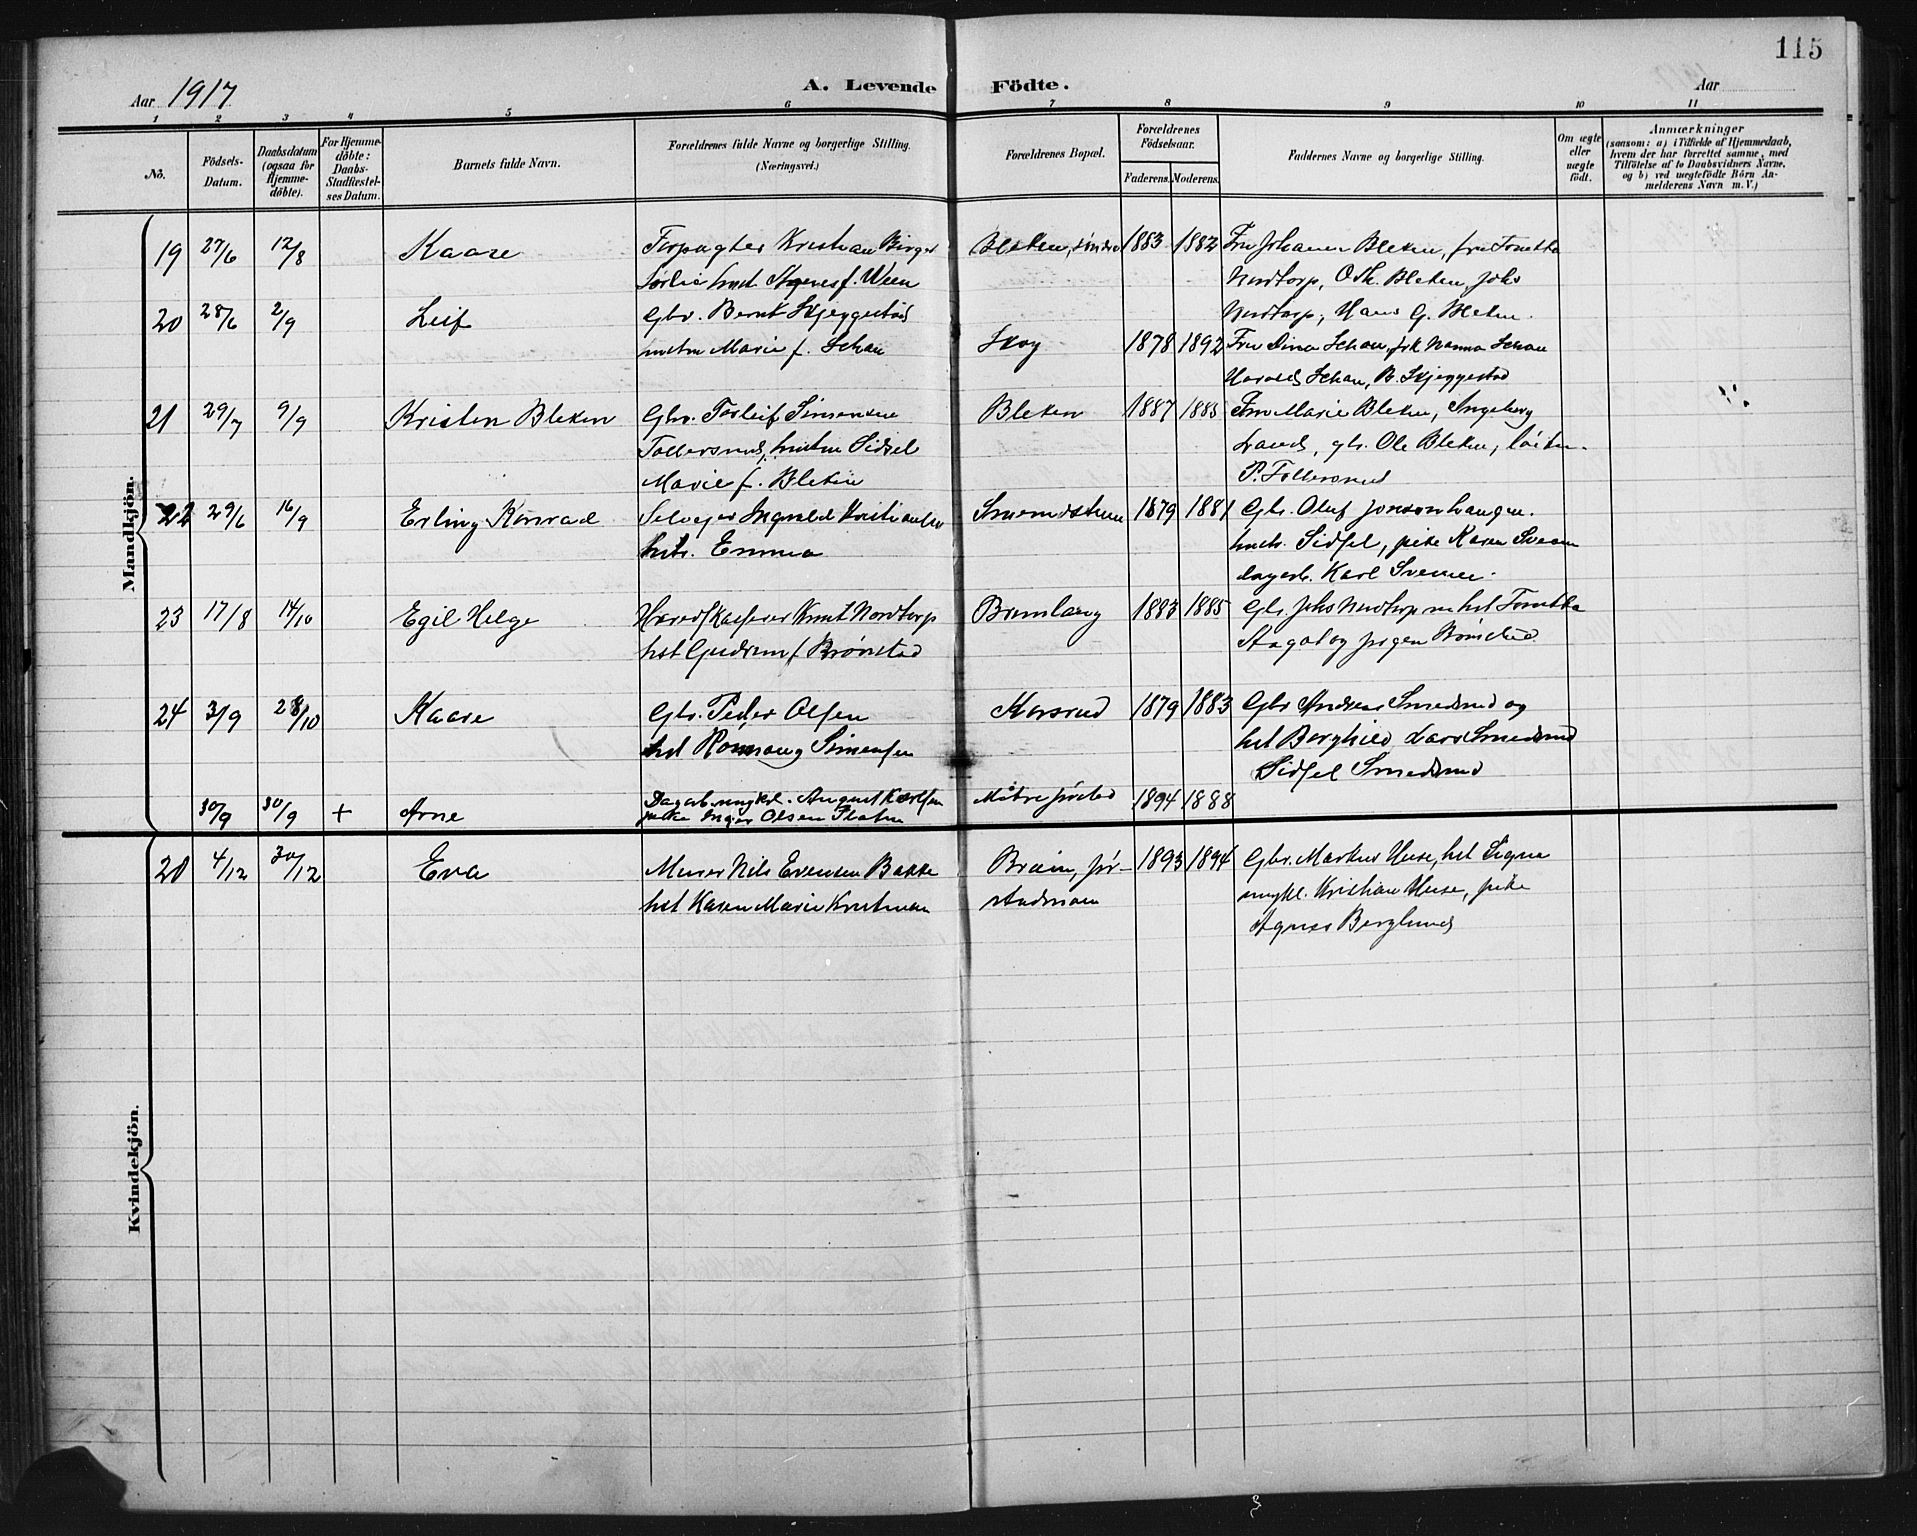 115
Aar 1917
A. Levende Födte.
Aar
1 2 3 4 5 6 7 8 9 10 11
No.
Födsels-Datum.
Daabsdatum (ogsaa for Hjemmedöbte).
For Hjemmedöbte: Daabs-Stadfæstelses Datum.
Barnets fulde Navn.
Forældrenes fulde Navne og borgerlige Stilling. (Næringsvei.)
Forældrenes Bopæl.
Forældrenes Födselsaar.
Faderens. Moderens.
Faddernes Navne og borgerlige Stilling.
Om ægte eller uægte födt.
Anmærkninger
(saasom: a) i Tilfælde af Hjemmedaab, hvem der har forrettet samme, med Tilföielse af to Daabsvidners Navne, og b) ved uægtefödte Börn Anmelderens Navn m. V.)
Mandkjön.
19 27/6 12/8 Kaare Forpagter Kristian Birger Bleken, søndre 1883 1882 Fru Johanne Bleken, fru
Sørlie hust Agnes f. Ween Nordtorp, O. Bleken, Johs
20 28/6 2/9 Leif Gbr. Bernt Skjeggestad Nordtorp, Hans G. Bleken.
Marie f. Schau Skog 1878 1892 Fru Dina Schau, frk Nanna Schau
Harald Schau, B. Skjeggestad
21 29/7 9/9 Kristen Bleken Gbr. Torleif Simensen Bleken 1887 1885 Fru Marie Bleken, Ingeborg
Follersrud, hustru Sidsel Lands, gbr. Ole Bleken,
Marie f. Bleken P. Follersrud
22 29/6 16/9 Erling Konrad Selveier Ingvald Kristiansen 1879 1881 Gbr. Oluf Jonson Haugen.
hustr. Emma hustr. Sidsel, pike Karen
dagarb. Karl
23 17/8 14/10 Egil Helge Knut Nordtorp 1883 1885 Gbr. Johs Nordtorp
hst Gudrun f. Brønstad Aagot og Jørgen Brønstad
24 3/9 28/10 Kaare Gbr. Peder Olsen Korsrud 1879 1883 Gbr Andreas Smedsrud og
hst Simensen hst Borghild, Lars Smedsrud
Sidsel Smedsrud
30/9 30/9 + Arne Dagarb. ungkl. August Karlsen 1894 1888
pike Inger Olsen
Kvindekjön.
20 4/12 30/12 Eva Murer Nils Evensen Bakke 1893 1894 Gbr. Markus Huse, hst Signe
hst Karen Marie ungkl. Kristian Huse, pike
Agnes Berglund